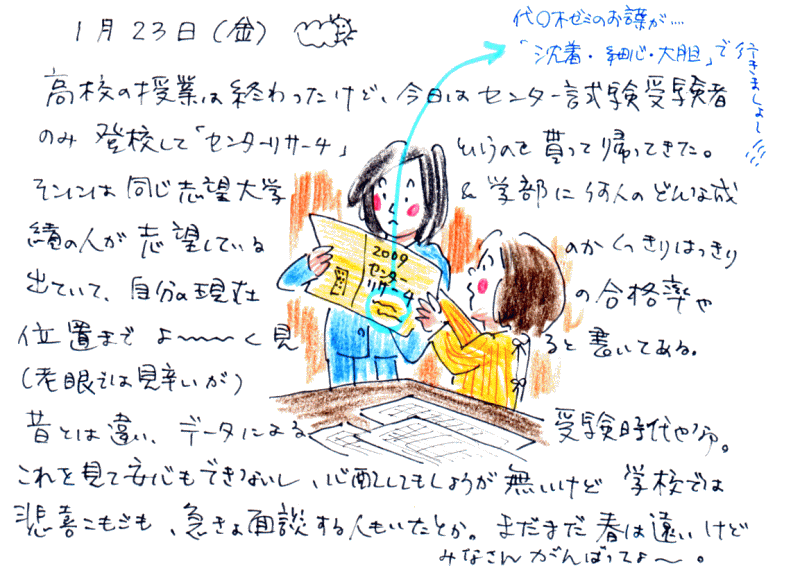 1月23日(金)
代〇木ゼミのお譲が....
「沈着・細心・大胆」で行きましょー!!!
高校の授業は終わったけど、今日はセンター試験受験者
のみ 登校して「センターリサーチ」というのを貰って帰ってきた。
そこには同じ志望大学&学部に何人のどんな成
績の人が志望しているのかくっきりはっきり
出ていて、自分の現在の合格率や
位置までよ〜〜〜く見ると書いてある。
(老眼では見辛いが)
昔とは違い、データによる受験時代やわ。
これを見て安心もできないし、心配してもしょうが無いけど 学校では
悲喜こもごも、急きょ面談する人もいたとか。まだまだ春は遠いけど
みなさんがんばってよ〜。
2009
センター
リサーチ